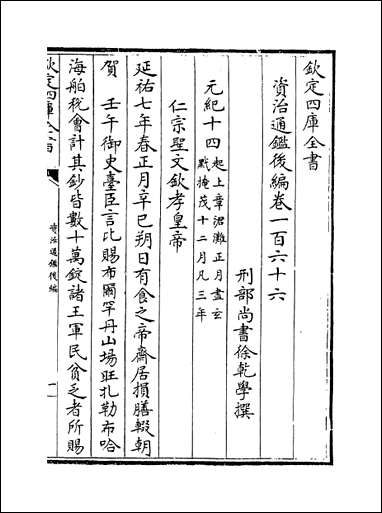 欽定四庫全書
資治通鑑後編卷一百六十六
刑部尚書徐乾學撰
元紀十四起上章涒灘正月盡玄
黓掩茂十二月凡三年
仁宗聖文欽孝皇帝
延祐七年春正月辛巳朔日有食之帝齋居損膳輟朝
賀 壬午御史臺臣言比賜布爾罕丹山場旺扎勒布哈
海舶稅會計其鈔皆數十萬錠諸王軍民貧乏者所賜
欽定四庫全書
資治通鑑後編
一